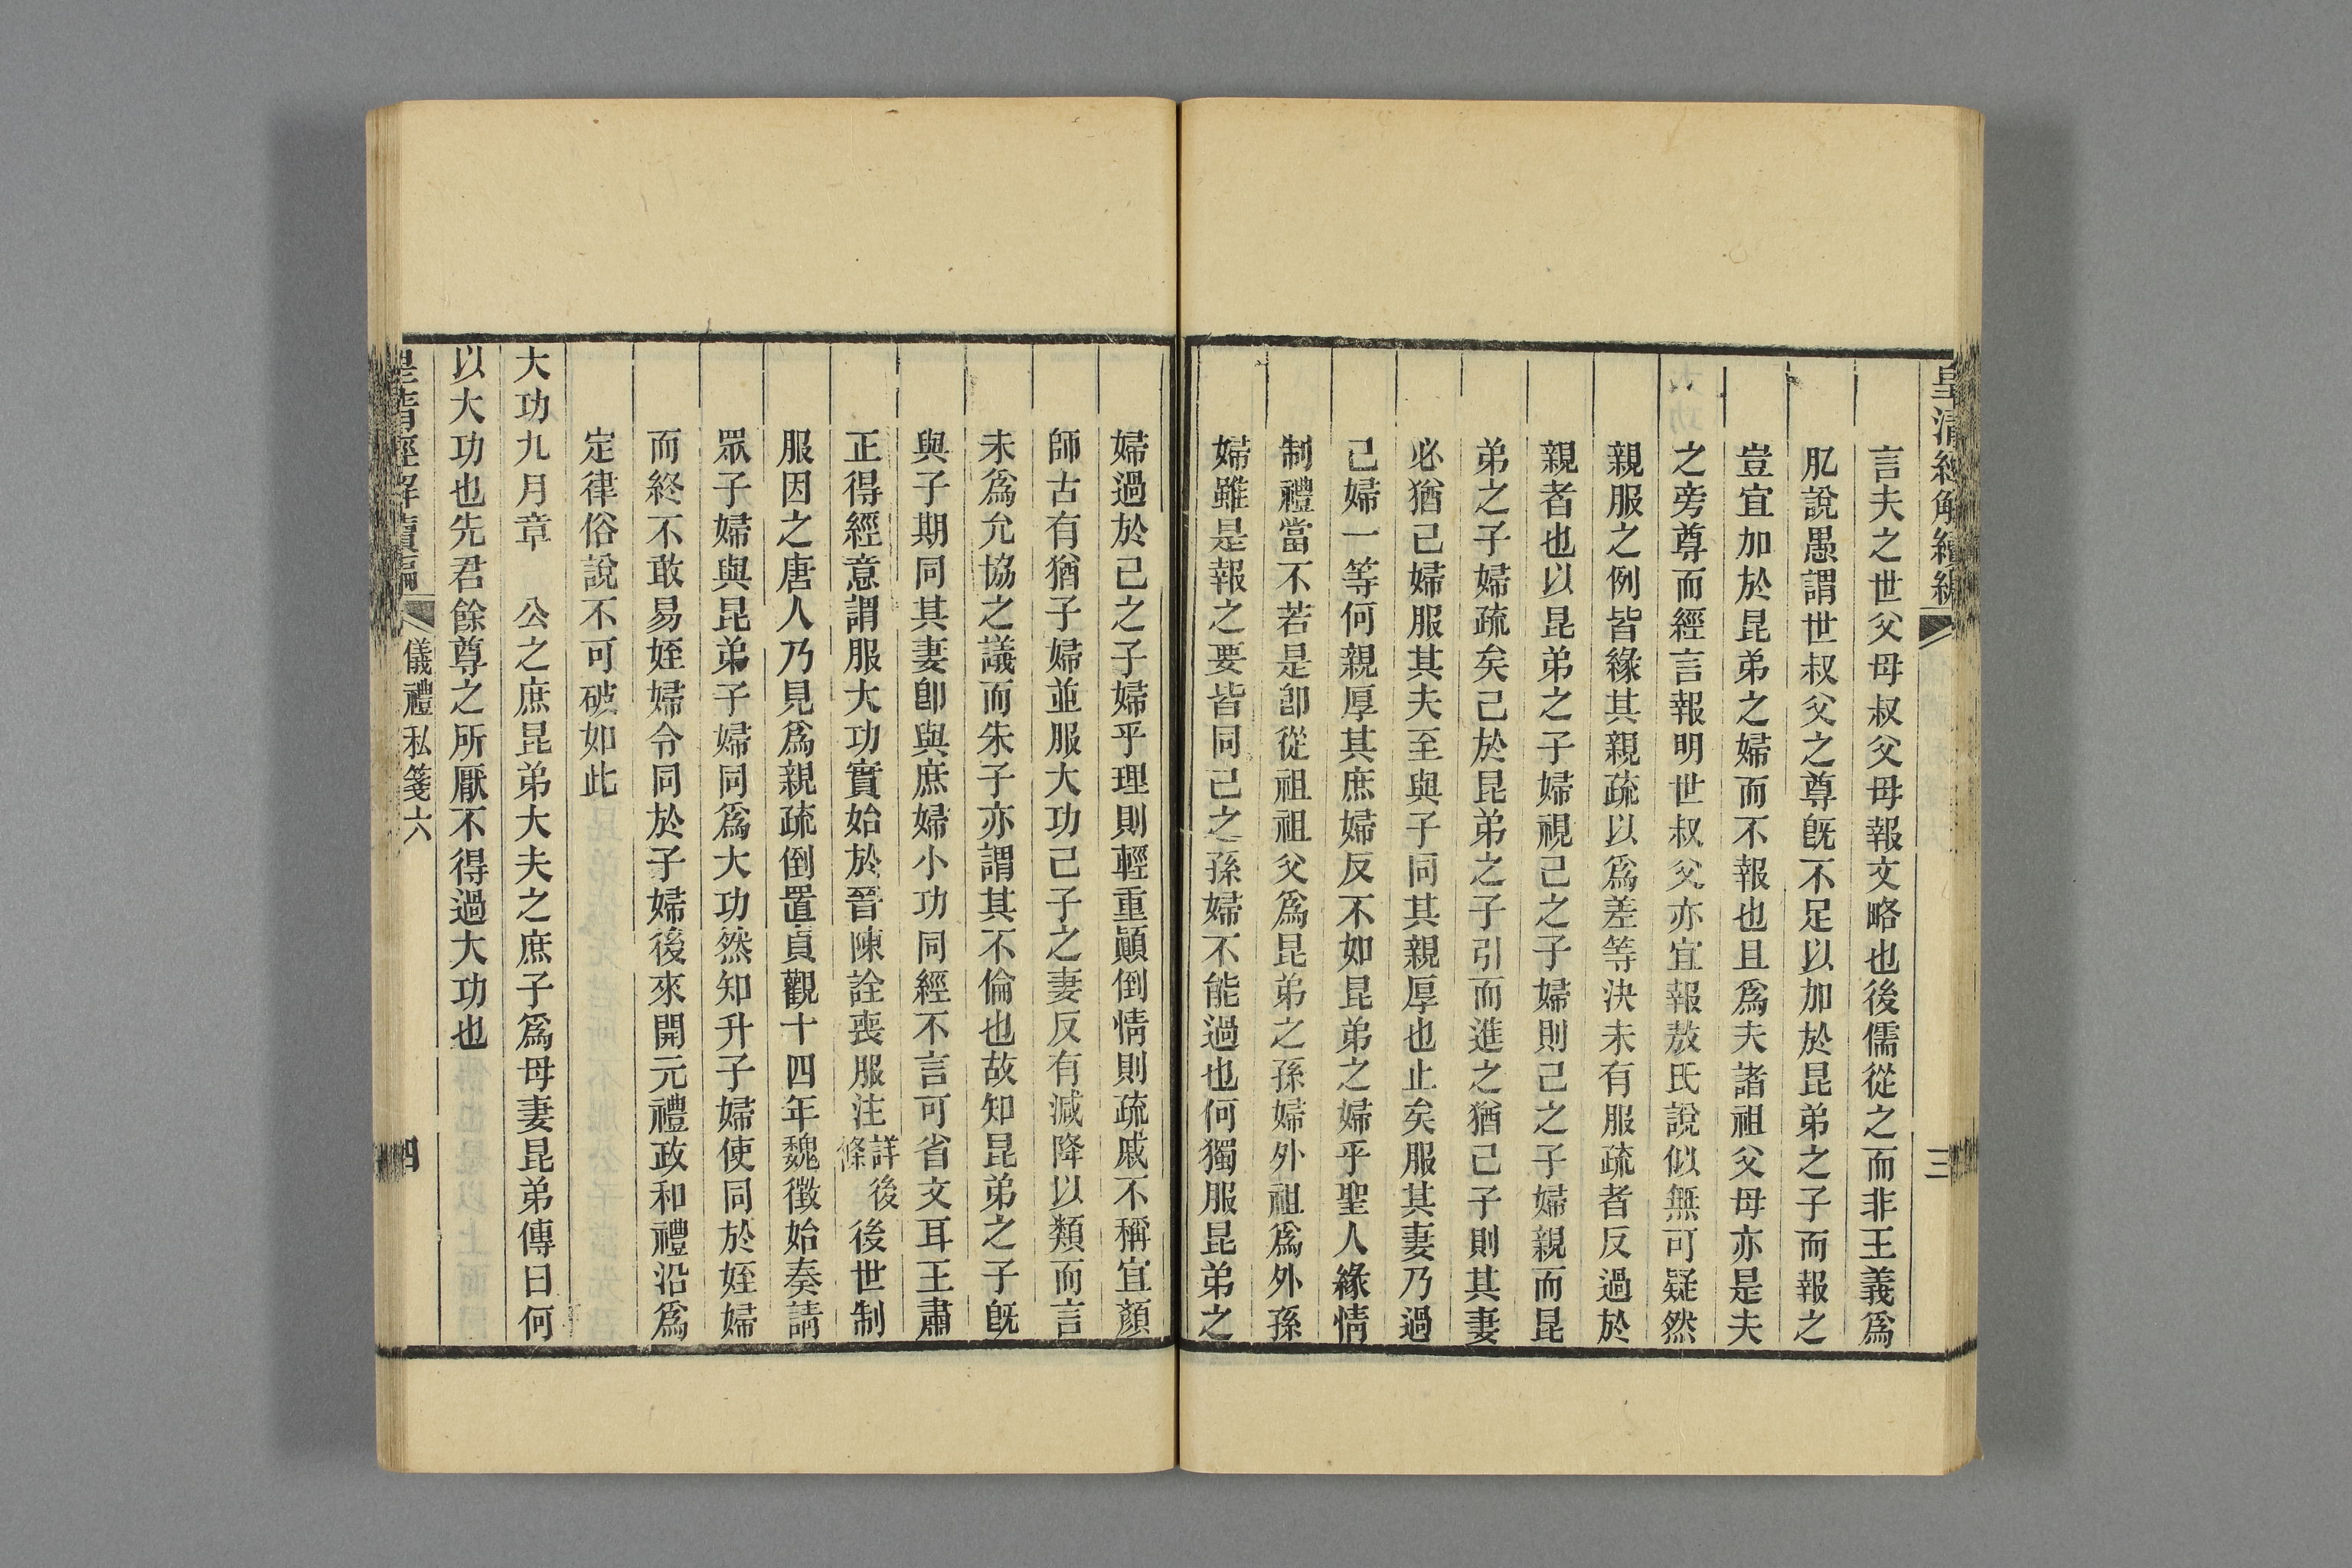 皇清經解續編
三
言夫之世父母叔父母報文略也後儒從之而非王義爲
肊說愚謂世叔父之尊旣不足以加於昆弟之子而報之
豈宜加於昆弟之婦而不報也且爲夫諸祖父母亦是夫
之旁尊而經言報明世叔父亦宜報敖氏說似無可疑然
親服之例皆緣其親疏以爲差等決未有服疏者反過於
親者也以昆弟之子婦視己之子婦則己之子婦親而昆
弟之子婦疏矣己於昆弟之子引而進之猶己子則其妻
必猶己婦服其夫至與子同其親厚也止矣服其妻乃過
己婦一等何親厚其庶婦反不如昆弟之婦乎聖人緣情
制禮當不若是卽從祖祖父爲昆弟之孫婦外祖爲外孫
婦雖是報之要皆同己之孫婦不能過也何獨服昆弟之
婦過於己之子婦乎理則輕重顚倒情則疏戚不稱宜顏
師古有猶子婦並服大功己子之妻反有減降以類而言
未爲允協之議而朱子亦謂其不倫也故知昆弟之子旣
與子期同其妻卽與庶婦小功同經不言可省文耳王肅
正得經意謂服大功實始於晉陳詮喪服注詳後條後世制
服因之唐人乃見爲親疏倒置貞觀十四年魏徵始奏請
眾子婦與昆弟子婦同爲大功然知升子婦使同於姪婦
而終不敢易姪婦令同於子婦後來開元禮政和禮沿爲
定律俗說不可破如此
大功九月章　公之庶昆弟大夫之庶子爲母妻昆弟傳曰何
以大功也先君餘尊之所厭不得過大功也
皇清經解續編
儀禮私箋六
四